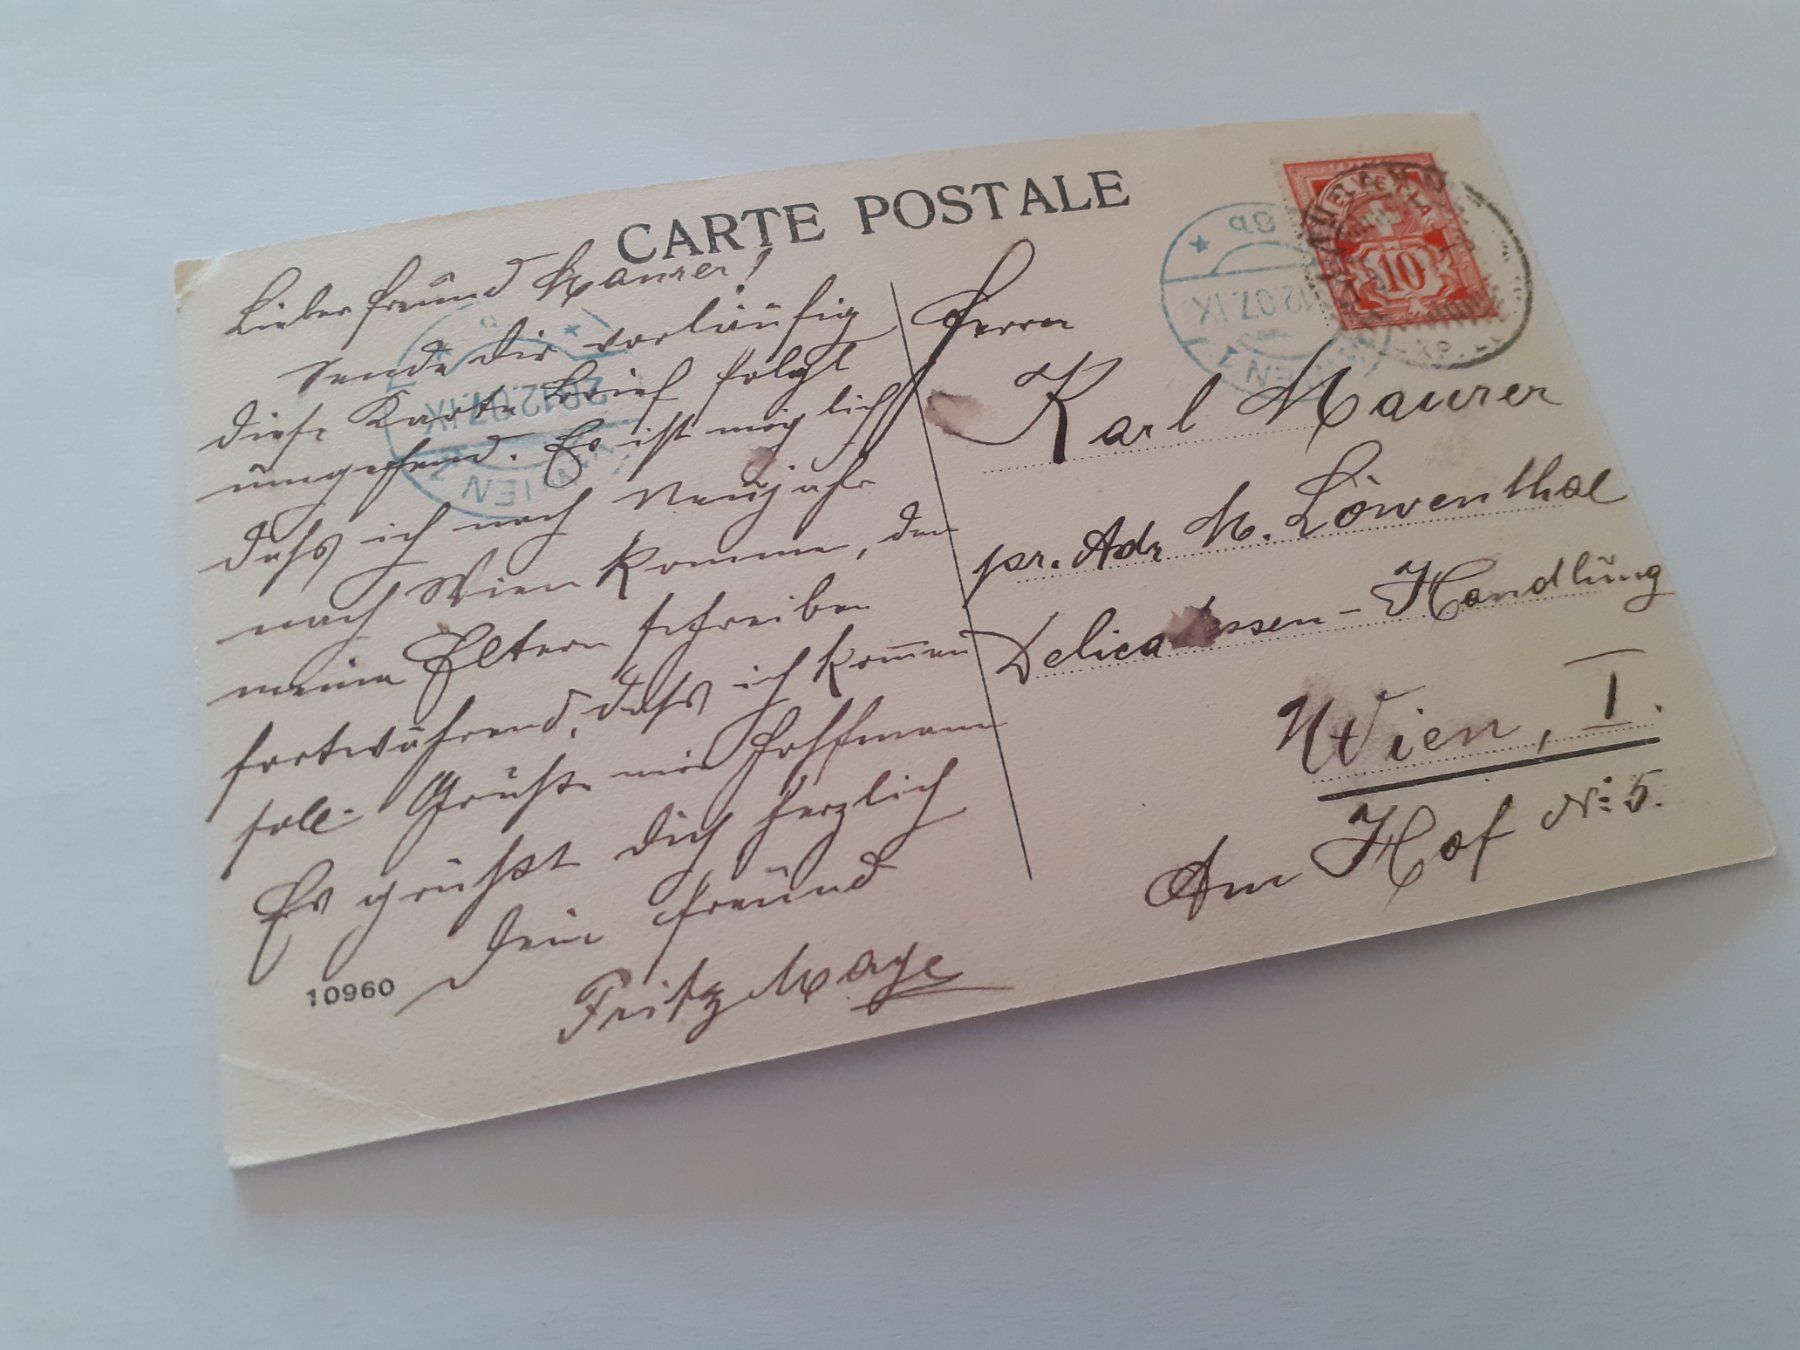 CARTE POSTALE
Lieber Freund Maurer!
Sende dir vorläufig
diese Karte Brief folgt
umgehend. Es ist möglich
dass ich nach Neujahr
nach Wien komme, den
meine Eltern schreiben
fortwährend, dass ich kom̅en
soll. Grüsse mir Hoffmann
Es grüsst dich herzlich
dein Freund
Fritz Maye
10960
Herrn
Karl Maurer
pr. Adr M. Löwenthal
Delicatessen-Handlung
Wien, I.
Am Hof No 5.
HELVETIA
10
WIEN 1
12.07.IX
WIEN
12.07.IX